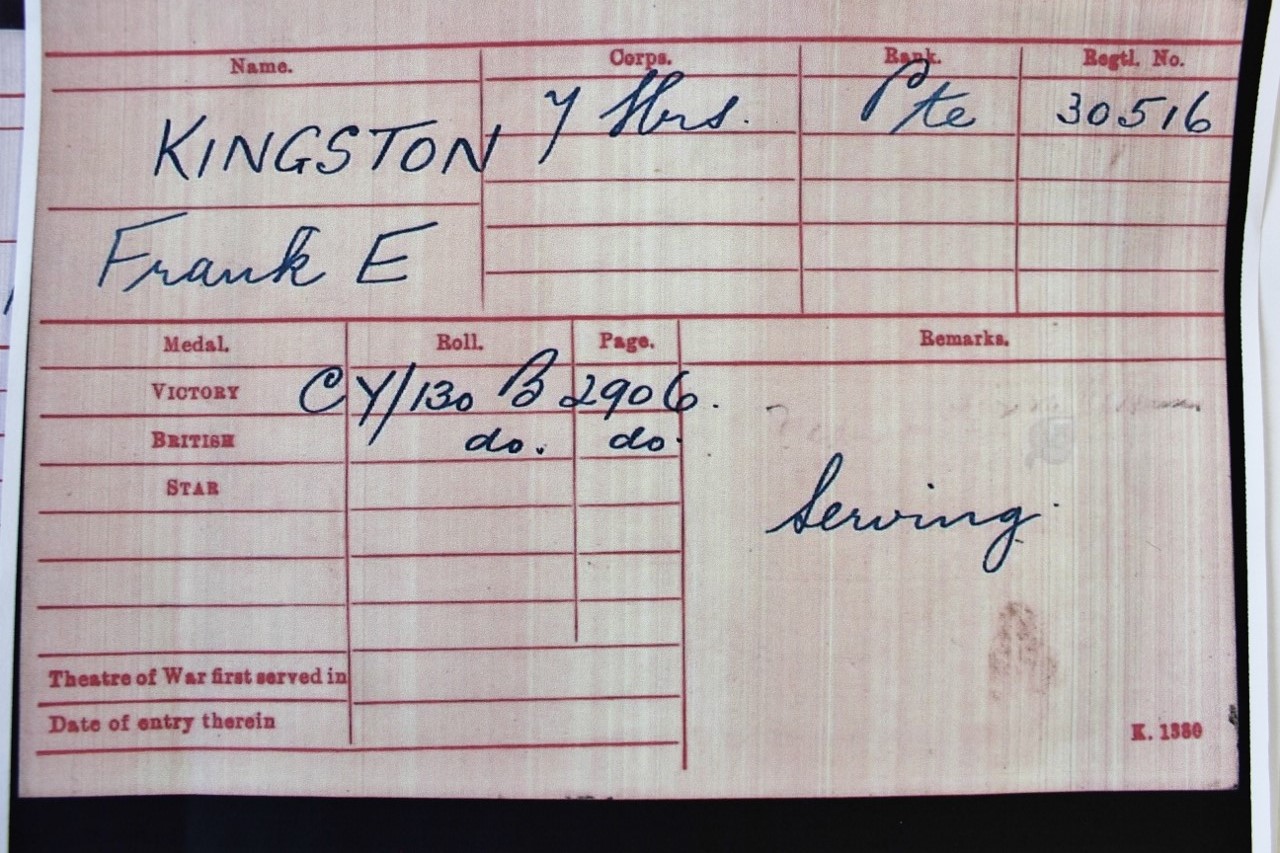 Name. Corps. Rank. Regtl. No.
KINGSTON 7 Hrs. Pte 30516
Frank E
Medal. Roll. Page. Remarks.
VICTORY CY/130 B 2906.
BRITISH do. do.
STAR
Serving.
Theatre of War first served in
Date of entry therein
K. 1380